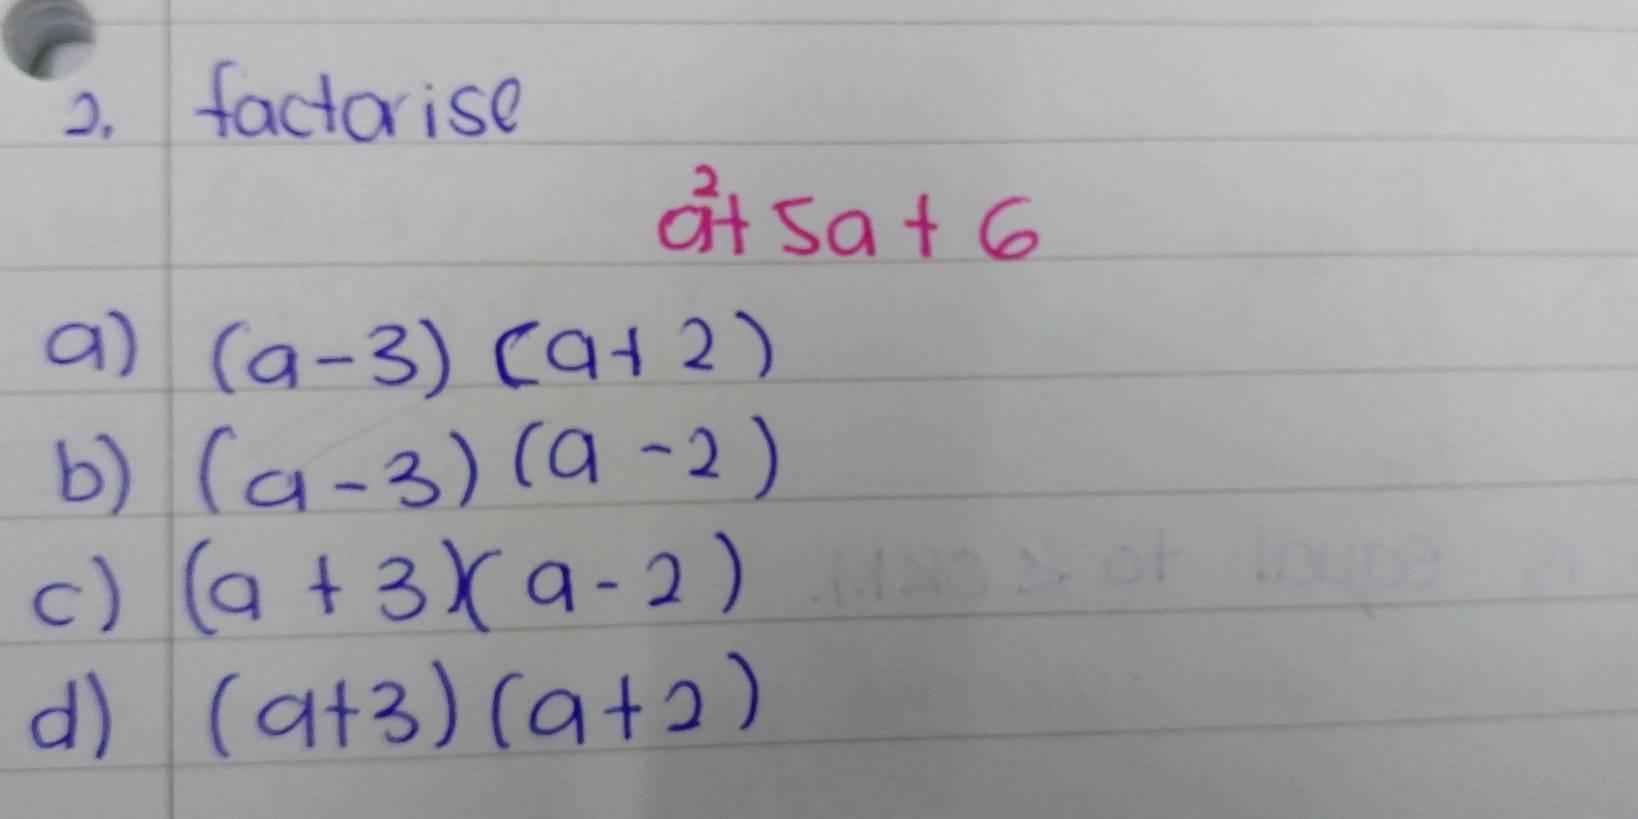 2. factorise
a² + 5a + 6
a) (a - 3) (a + 2)
b) (a - 3) (a - 2)
c) (a + 3)(a - 2)
d) (a + 3) (a + 2)